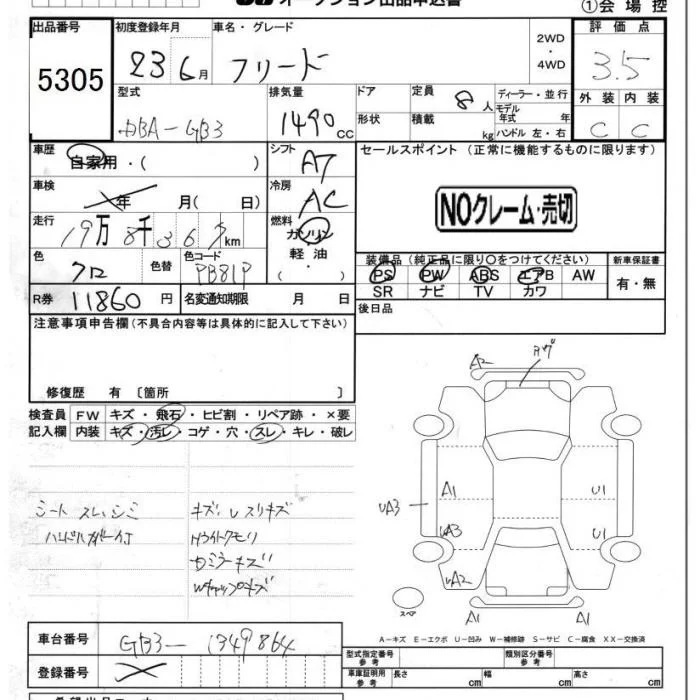 オークション出品申込書
①会 場 控
出品番号 初度登録年月 車名・グレード 2WD ・ 4WD 評 価 点
5305 23 6月 フリード 3.5
型式 排気量 ドア 定員 8人 ディーラー・並行 外 装 内 装
モデル年式 年
DBA-GB3 1490cc 形状 積載 kg ハンドル 左・右 C C
車歴 自家用・( ) シフト AT セールスポイント (正常に機能するものに限ります)
車検 年 月( 日) 冷房 AC
NOクレーム・売切
走行 19万8千367km 燃料 ガソリン
軽 油
・( )
色 クロ 色替 色コード PB81P
装備品(純正品に限り○をつけてください) 新車保証書
PS PW ABS エアB AW 有・無
SR ナビ TV カワ
R券 11860円 名変通知期限 月 日
後日品
注意事項申告欄(不具合内容等は具体的に記入して下さい)
修復歴 有 〔箇所 〕
検査員 FW キズ・飛石・ヒビ割・リペア跡・×要
記入欄 内装 キズ・汚レ・コゲ・穴・スレ・キレ・破レ
A2
A1 U1
UA3
UA3 U1
UA2
A1 A1
スペア
シート スレ、シミ キズ、レスリキズ
Hライトクモリ
ドミラーキズ
Wキャップキズ
A-キズ E-エクボ U-凹み W-補修跡 S-サビ C-腐食 XX-交換済
車台番号 GB3-1349864
型式指定番号 参考 類別区分番号 参考
登録番号
車庫証明用 参考 長さ cm 幅 cm 高さ cm